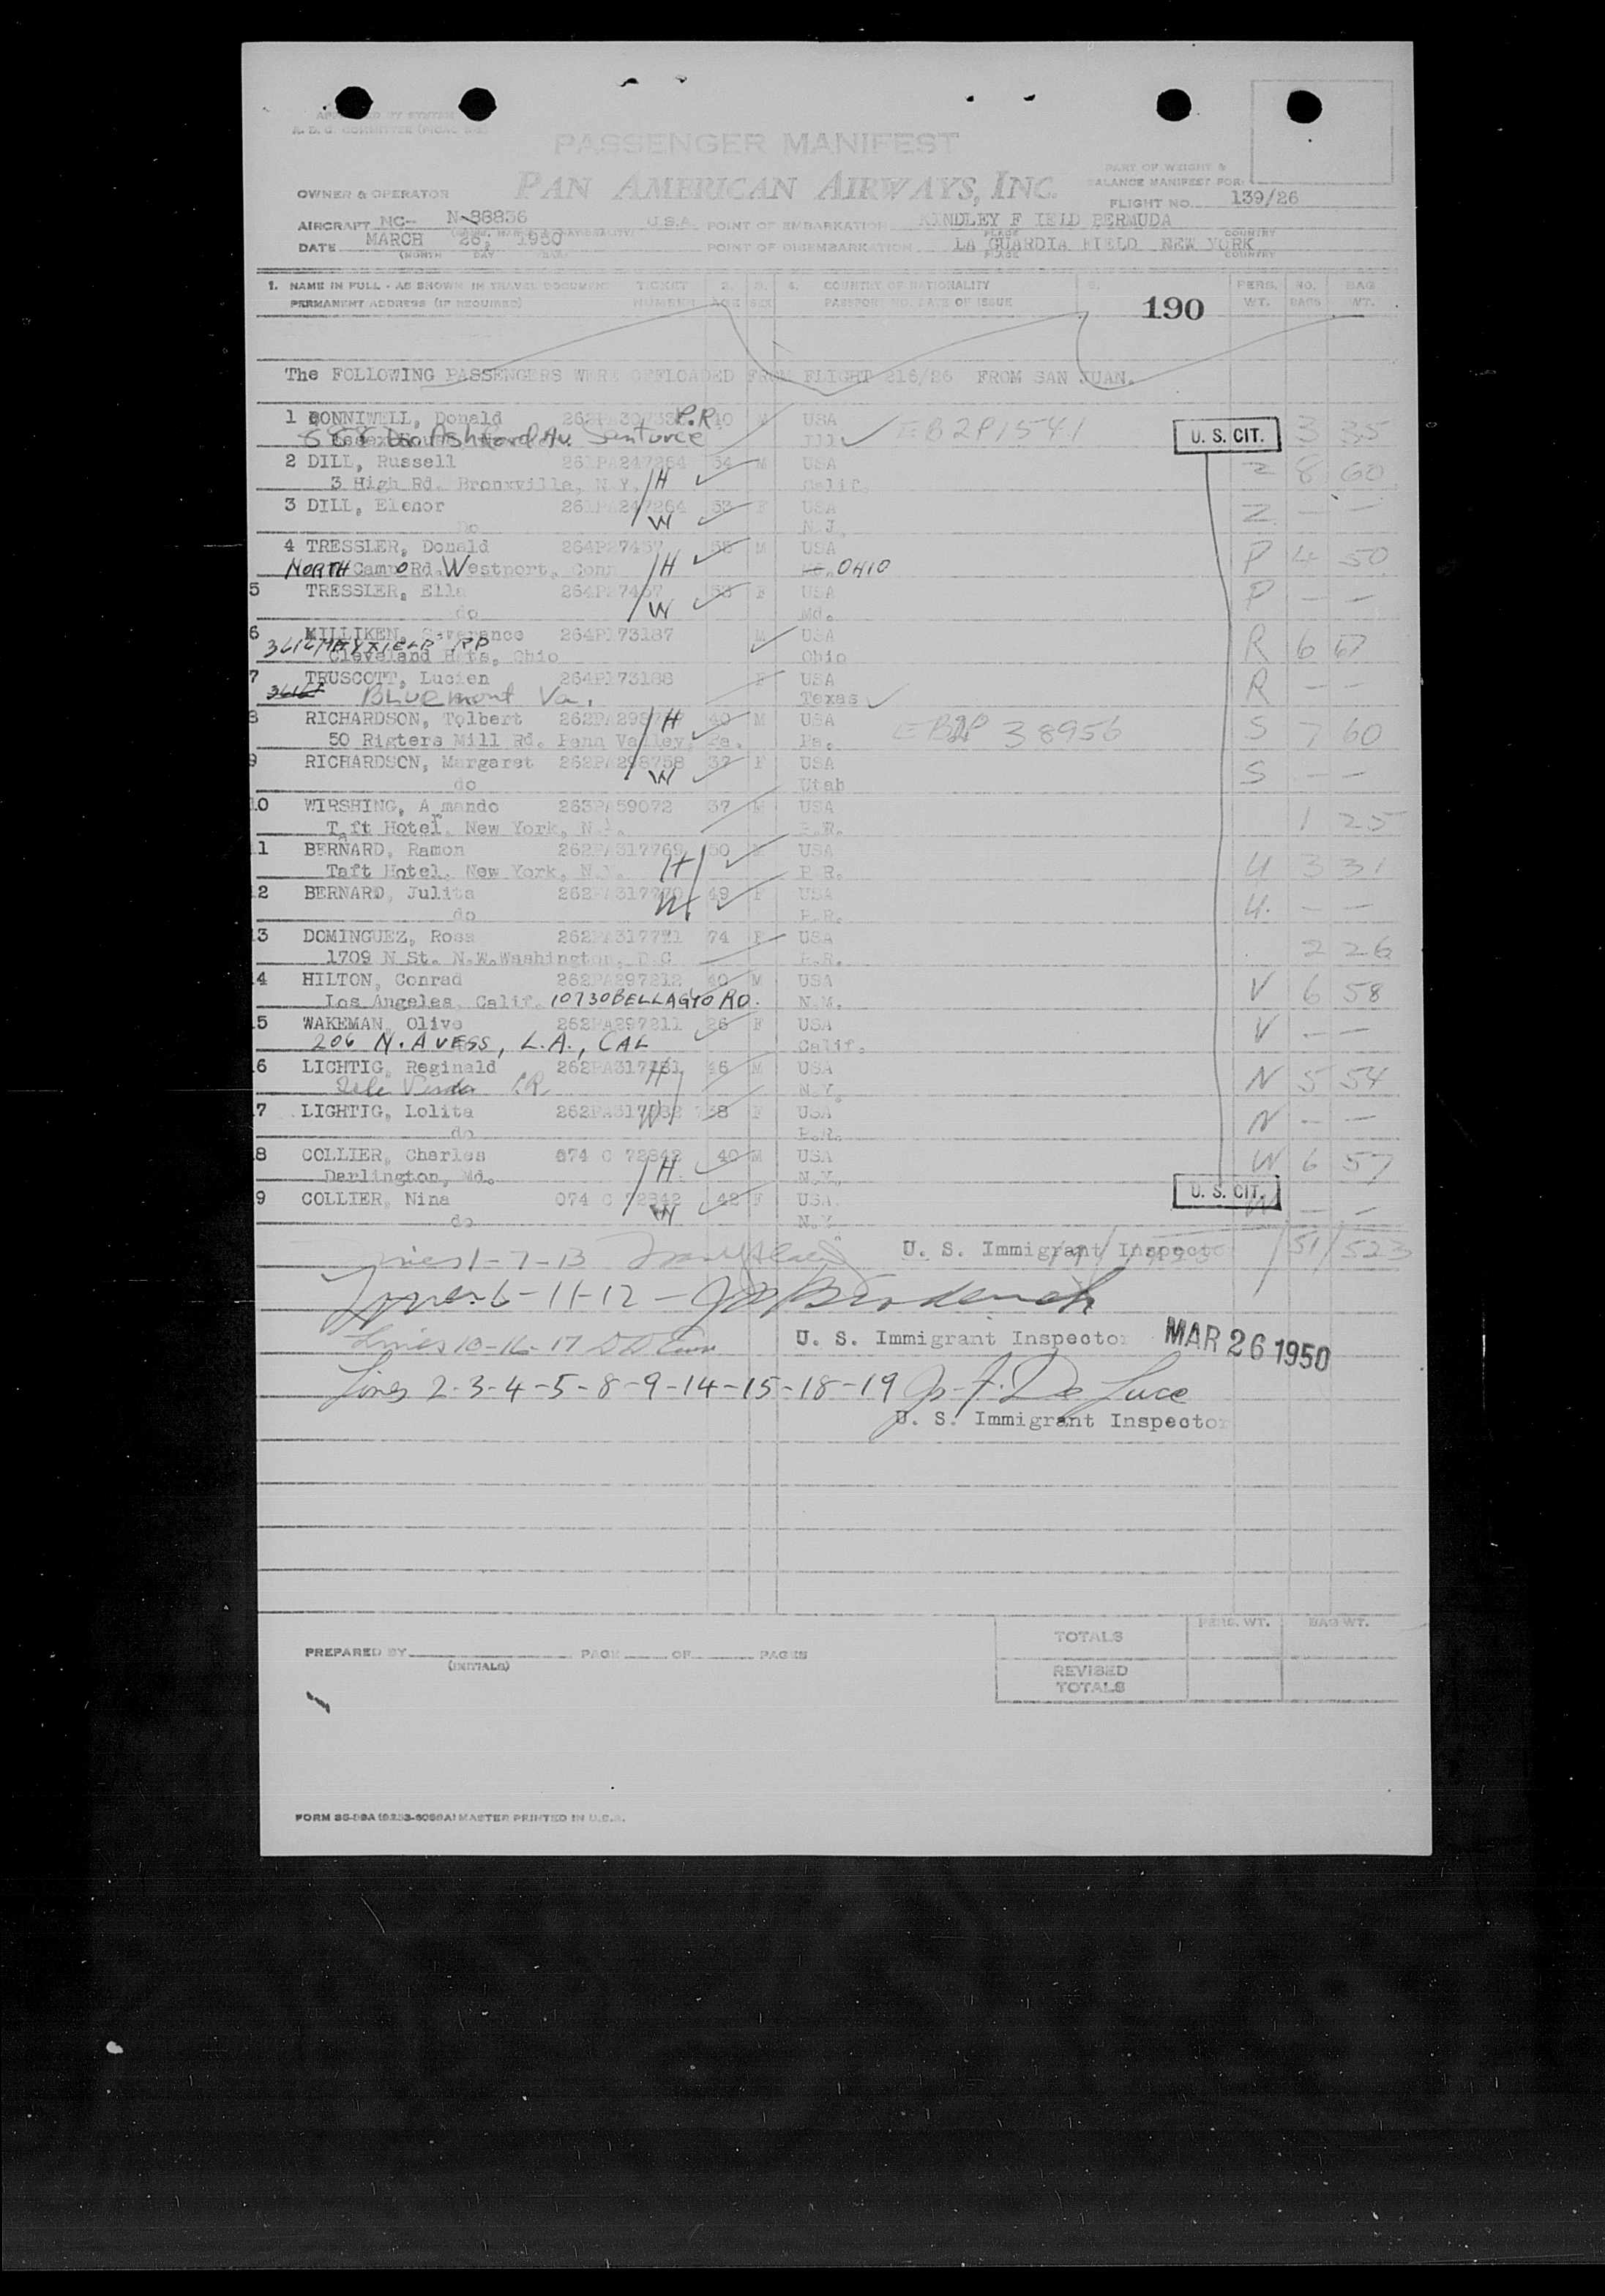 PASSENGER MANIFEST
PAN AMERICAN AIRWAYS, INC.
PART OF WEIGHT &
BALANCE MANIFEST FOR:
OWNER & OPERATOR
FLIGHT NO. 139/26
AIRCRAFT NC- N-88836 U.S.A. POINT OF EMBARKATION KINDLEY F IELD BERMUDA
DATE MARCH 26, 1950 POINT OF DISEMBARKATION LA GUARDIA FIELD NEW YORK
(MONTH DAY PLACE COUNTRY
1. NAME IN FULL - AS SHOWN IN TRAVEL DOCUMENT TICKET 2. 3. 4. COUNTRY OF NATIONALITY PERS. NO. BAG
PERMANENT ADDRESS (IF REQUIRED) NUMBER AGE SEX PASSPORT NO. DATE OF ISSUE 190 WT. BAGS WT.
The FOLLOWING PASSENGERS WERE OFFLOADED FROM FLIGHT 216/26 FROM SAN JUAN.
1 BONNIWELL, Donald P.R. 40 M USA
Ashford Av. Santurce Ill EB2P1541 U. S. CIT. 3 35
2 DILL, Russell 261PA247264 54 M USA Z 8 60
3 High Rd. Bronxville, N.Y. H Calif.
3 DILL, Elenor 261PA247264 53 F USA Z — —
do W N.J.
4 TRESSLER, Donald 264P27457 55 M USA P 4 50
NORTH Campo Rd. Westport, Conn H OHIO
5 TRESSLER, Ella 264P27457 53 F USA P — —
do W Md.
6 MILLIKEN, Severance 264P173187 M USA R 6 67
3616 MAYFIELD RD
Cleveland Hts, Ohio Ohio
7 TRUSCOTT, Lucien 264P173188 F USA R — —
3616 Bluemont Va. Texas
8 RICHARDSON, Tolbert 40 M USA EB2P 38956 S 7 60
50 Rigters Mill Rd. Penn Valley, Pa. H Pa.
9 RICHARDSON, Margaret 262PA298758 37 F USA S — —
do W Utah
10 WIRSHING, Armando 263PA59072 37 M USA 1 25
Taft Hotel, New York, N.Y. P.R.
11 BERNARD, Ramon 262PA317769 50 M USA U 3 31
Taft Hotel, New York, N.Y. H P.R.
12 BERNARD, Julita 262PA317770 49 F USA U. — —
do W P.R.
13 DOMINGUEZ, Rosa 262PA317771 74 F USA 2 26
1709 N St. N.W. Washington, D.C P.R.
14 HILTON, Conrad 262PA297212 40 M USA V 6 58
Los Angeles, Calif. 10730 BELLAGIO RD. N.M.
15 WAKEMAN, Olive 262PA297211 26 F USA V — —
206 N. AVESS, L.A., CAL Calif.
16 LICHTIG, Reginald 46 M USA N 5 54
P.R. H N.Y.
17 LIGHTIG, Lolita 38 F USA N — —
do W P.R.
18 COLLIER, Charles 074 C 72842 40 M USA W 6 57
Darlington, Md. H N.Y.
19 COLLIER, Nina 074 C 72842 42 F USA. U. S. CIT. W — —
do W N.Y.
Lines 1-7-13 U. S. Immigrant Inspector 51 523
Lines 6-11-12 -
Lines 10-16-17 U. S. Immigrant Inspector MAR 26 1950
Lines 2-3-4-5-8-9-14-15-18-19 De Luca
U. S. Immigrant Inspector
PERS. WT. BAG WT.
TOTALS
PREPARED BY PAGE OF PAGES
(INITIALS)
REVISED
TOTALS